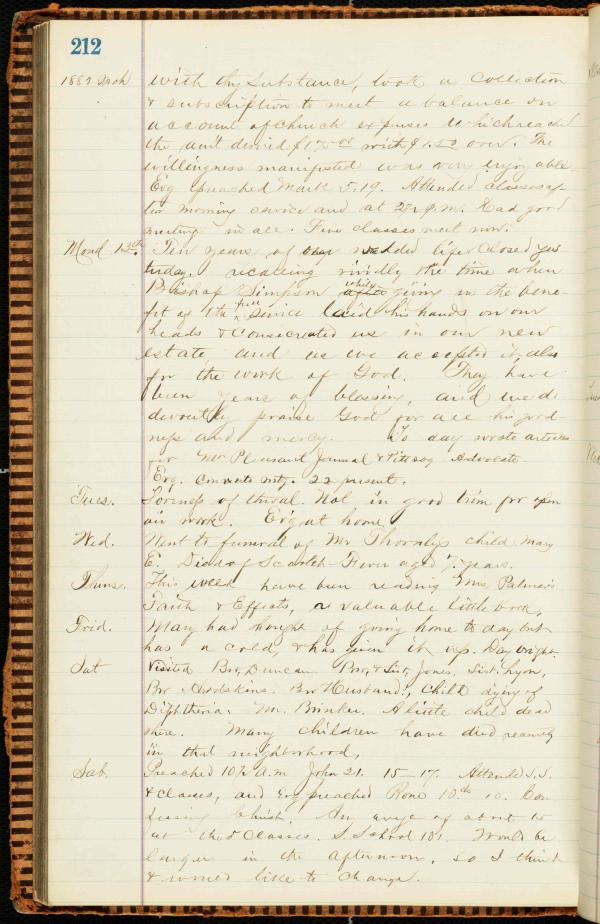 212
1882. Mch with thy substance, took a collection
& subscription to meet a balance on
account of church expenses which reached
the amt desired $175.00 with $1.50 over. The
willingness manifested was very enjoyable.
Evg preached Mark 5.19. Attended classes af-
ter morning service and at 2 P.M. Had good
meeting in all. Five classes meet now.
Mond. 13th. Ten years of our wedded life closed yes-
terday. recalling vividly the time when
Bishop Simpson after while giving us the bene-
fit of the full service laid his hands on our
heads & consecrated us in our new
estate and as we accepted it, also
for the work of God. They have
been years of blessing, and we do
devoutly praise God for all his good-
ness and mercy. To day wrote articles
for Mt Pleasant Journal & Pittsbg Advocate.
Evg. Converts mtg. 22 present.
Tues. Soreness of throat. Not in good trim for open
air work. Evg at home.
Wed. Went to funeral of Mr Thornlys child Mary
E. Died of Scarlet-Fever aged 7. years.
Thurs. This week have been reading Mrs. Palmer's
Faith & Effects, a valuable little book.
Frid. Mary had thought of going home to day but
has a cold, & has given it up. Day bright.
Sat Visited Bro. Duncan Bro. & Sist. Jones. Sist. Lyon,
Bro Hodskins. Bro Husband, child dying of
Diphtheria. Mr. Brinker. A little child dead
there. Many children have died recently
in that neighborhood.
Sab. Preached 10½ a.m John 21. 15-17. Attended S.S.
& classes, and evg preached Rom 10th 10. Con-
fessing Christ. An avege of about 10
at the 5 Classes. S. School 101. Would be
larger in the afternoon, so I think
& would like to change.